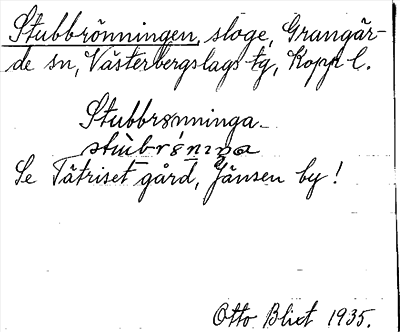 Stubbrönningen, sloge, Grangär-
de sn, Västerbergslags tg, Kopp l.
Stubbrønninga
Se Tätriset gård, Jänsen by!
Otto Blixt 1935.